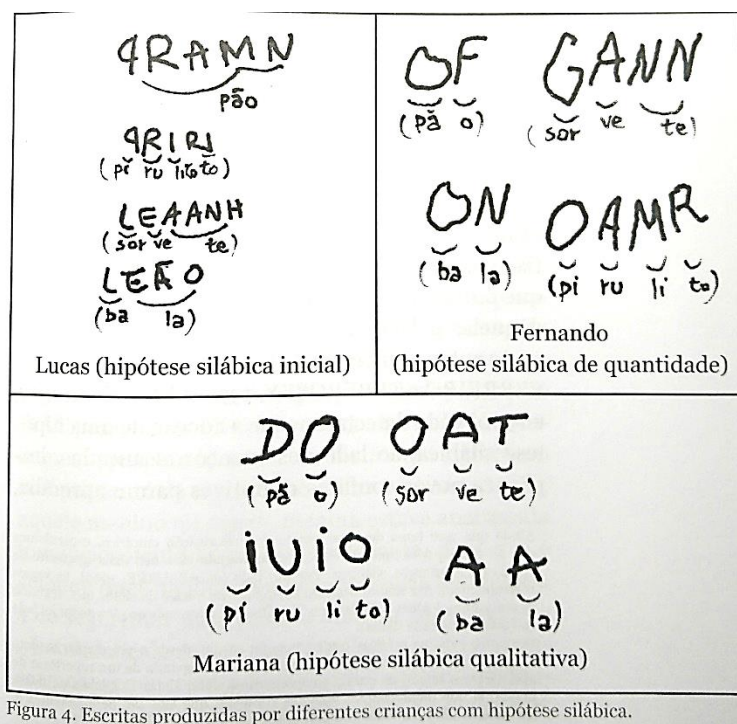 ꟼRAMN
pão
ꟼRIRI
(pi ru li to)
LEAANH
(sor ve te)
LEÃO
(ba la)
Lucas (hipótese silábica inicial)
OF GANN
(pã o) (sor ve te)
ON OAMR
(ba la) (pi ru li to)
Fernando
(hipótese silábica de quantidade)
DO OAT
(pã o) (sor ve te)
iUiO A A
(pi ru li to) (ba la)
Mariana (hipótese silábica qualitativa)
Figura 4. Escritas produzidas por diferentes crianças com hipótese silábica.